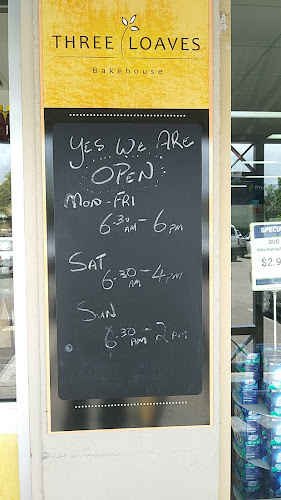 THREE LOAVES
Bakehouse
YES WE ARE
OPEN
MON - FRI
6.30 AM - 6 PM
SAT
6.30 AM - 4 PM
SUN
6.30 AM - 2 PM
SPECIAL
DUO
$2.9